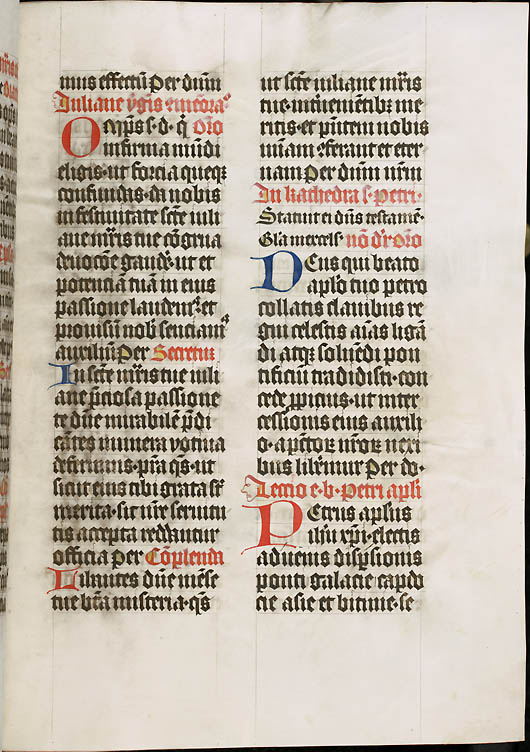 mus effectū Per dnm̄
Juliane v̄gis ⁊ mr̄
O mps s. d. q̄ Orō
infirma mūdi
eligis. ut forcia queqꝫ
confundas. da nobis
in festiuitate sct̄e iuli
ane mr̄is tue cōgrua
deuocōe gaudē. ut et
potenciā tuā in eius
passione laudemꝰ. et
prouisum nobꝫ senciamꝰ
auxiliū. Per Secretum
In sct̄e mr̄is tue iuli
ane p̄ciosa passione
te dn̄e mirabilē p̄di
cātes munera votiua
deferimus. prā qs̄. ut
sicut eius tibi grata sūt
merita. sit nr̄e seruitu
tis accepta reddantur
officia Per Cōplendū
Libantes dn̄e mēse
tue btā misteria. qs̄
ut scte iuliane mr̄is
tue. interueniētibꝫ me
ritis. et p̄ntem nobis
mīam ꝯferant et eter
nam Per dnm̄ nrm̄
In kathedra s. petri.
Statuit ei dn̄s testamē.
Gl̄a in excels. Orō
DEus qui beato
apl̄o tuo petro
collatis clauibus re
gni celestis aīas ligā
di atqꝫ soluēdi pon
tificiū tradidisti. con
cede ꝓpicius. ut inter
cessionis eius auxili
o. a pctōꝝ nrōꝝ nexi
bus liberemur Per do.
Lectio e. b. Petri apl̄i
PEtrus apl̄us
ihū xp̄i. electis
aduenis disp̄sionis
ponti galacie capdo
cie asie et bitinie. se